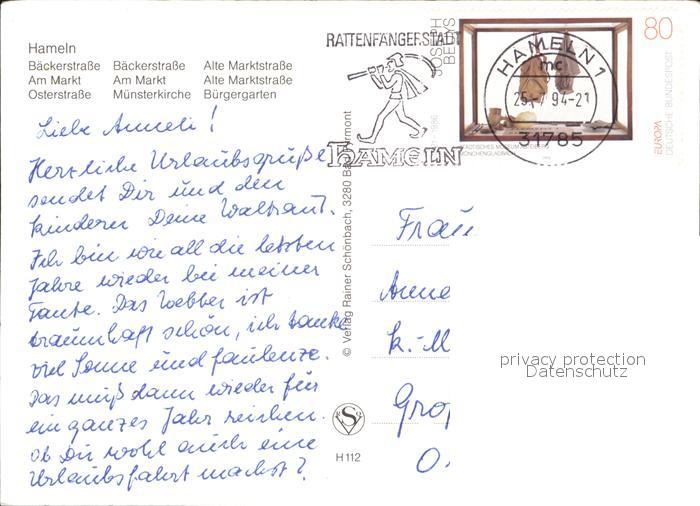 Hameln
Bäckerstraße Bäckerstraße Alte Marktstraße
Am Markt Am Markt Alte Marktstraße
Osterstraße Münsterkirche Bürgergarten
Liebe Anneli!
Herzliche Urlaubsgrüße
sendet Dir und den
Kindern Deine Waltraut.
Ich bin wie all die letzten
Jahre wieder bei meiner
Tante. Das Wetter ist
traumhaft schön, ich tanke
viel Sonne und faulenze.
Das muß dann wieder für
ein ganzes Jahr reichen.
Ob Du wohl auch eine
Urlaubsfahrt machst?
RATTENFÄNGERSTADT
HAMELN
© Verlag Rainer Schönbach, 3280 Bad Pyrmont
S
H 112
JOSEPH
BEUYS
80
EUROPA
DEUTSCHE BUNDESPOST
STÄDTISCHES MUSEUM
MÖNCHENGLADBACH
HAMELN 1
mc
25.-7.94-21
31785
Frau
Anne
K.-M
Gro
O.
privacy protection
Datenschutz